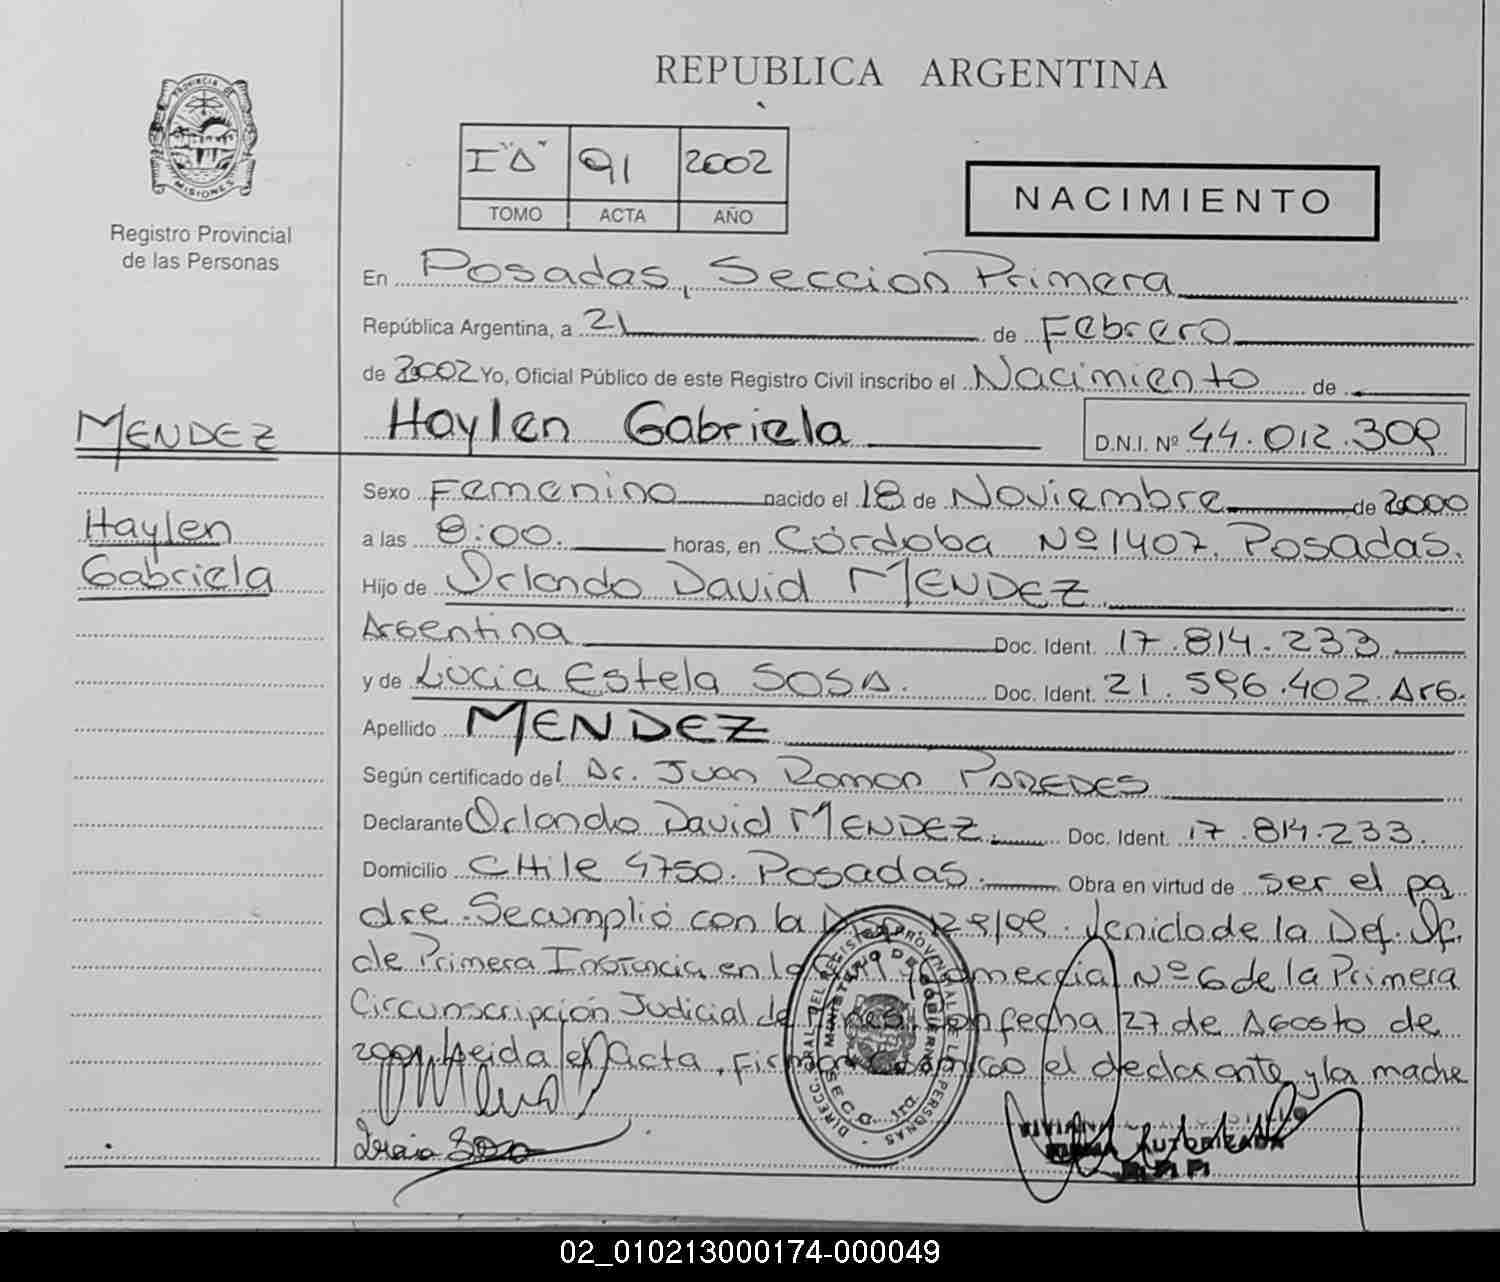 REPUBLICA ARGENTINA
PROVINCIA DE
MISIONES
Registro Provincial
de las Personas
I "A" 91 2002
TOMO ACTA AÑO
NACIMIENTO
En Posadas, Seccion Primera
República Argentina, a 21 de Febrero
de 2002 Yo, Oficial Público de este Registro Civil inscribo el Nacimiento de
MENDEZ
Haylen Gabriela D.N.I. Nº 44.012.309
Haylen
Gabriela
Sexo Femenino nacido el 18 de Noviembre de 2000
a las 8:00. horas, en Córdoba Nº 1407. Posadas.
Hijo de Orlando David MENDEZ
Argentina Doc. Ident. 17.814.233
y de Lucia Estela SOSA. Doc. Ident. 21.596.402. Arg.
Apellido MENDEZ
Según certificado del Dr. Juan Ramon PAREDES
Declarante Orlando David MENDEZ. Doc. Ident. 17.814.233.
Domicilio CHile 4750. Posadas. Obra en virtud de ser el pa
dre. Se cumplió con la Disp. Venido de la Def. Of.
de Primera Instancia en lo Civil y Comercial Nº 6 de la Primera
Circunscripción Judicial de con fecha 27 de Agosto de
2001. Leida el Acta, Firman conmigo el declarante y la madre
DIRECC. GRAL. DEL REGISTRO PROVINCIAL DE LAS PERSONAS
MINISTERIO DE GOBIERNO
SECC. 1ra.
AUTORIZADA
02_010213000174-000049